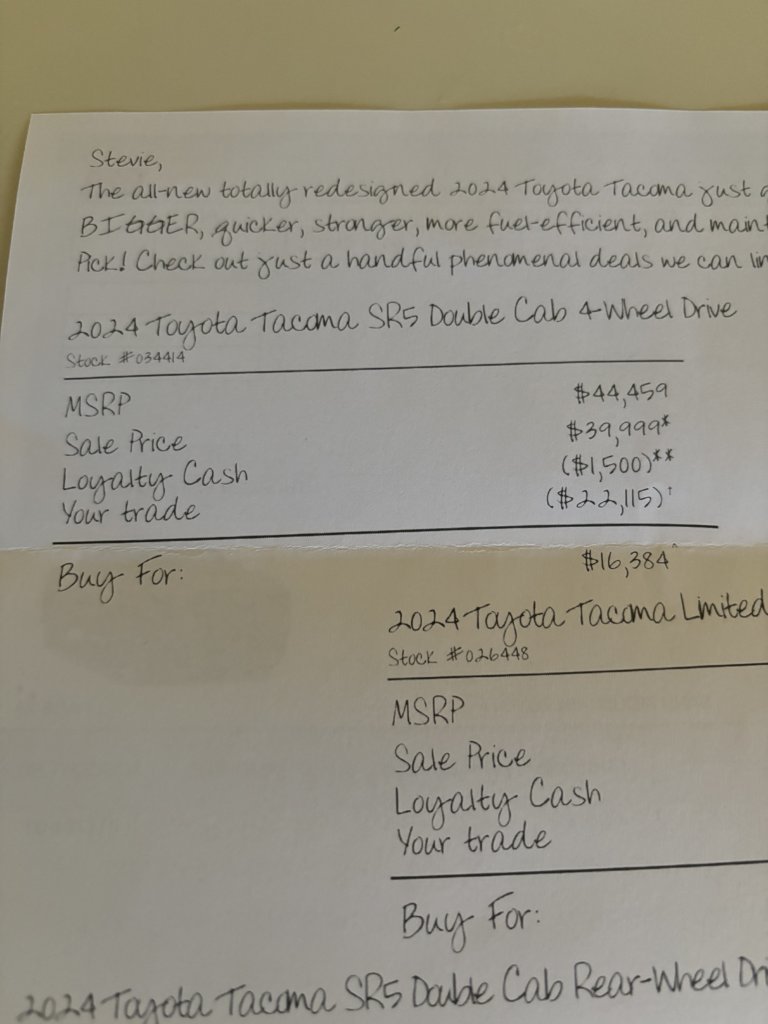 Stevie,
The all-new totally redesigned 2024 Toyota Tacoma just
BIGGER, quicker, stronger, more fuel-efficient, and
Pick! Check out just a handful phenomenal deals we can
2024 Toyota Tacoma SR5 Double Cab 4-Wheel Drive
Stock #034414
MSRP $44,459
Sale Price $39,999*
Loyalty Cash ($1,500)**
Your trade ($22,115)†
Buy For: $16,384^
2024 Toyota Tacoma Limited
Stock #026448
MSRP
Sale Price
Loyalty Cash
Your trade
Buy For:
2024 Toyota Tacoma SR5 Double Cab Rear-Wheel